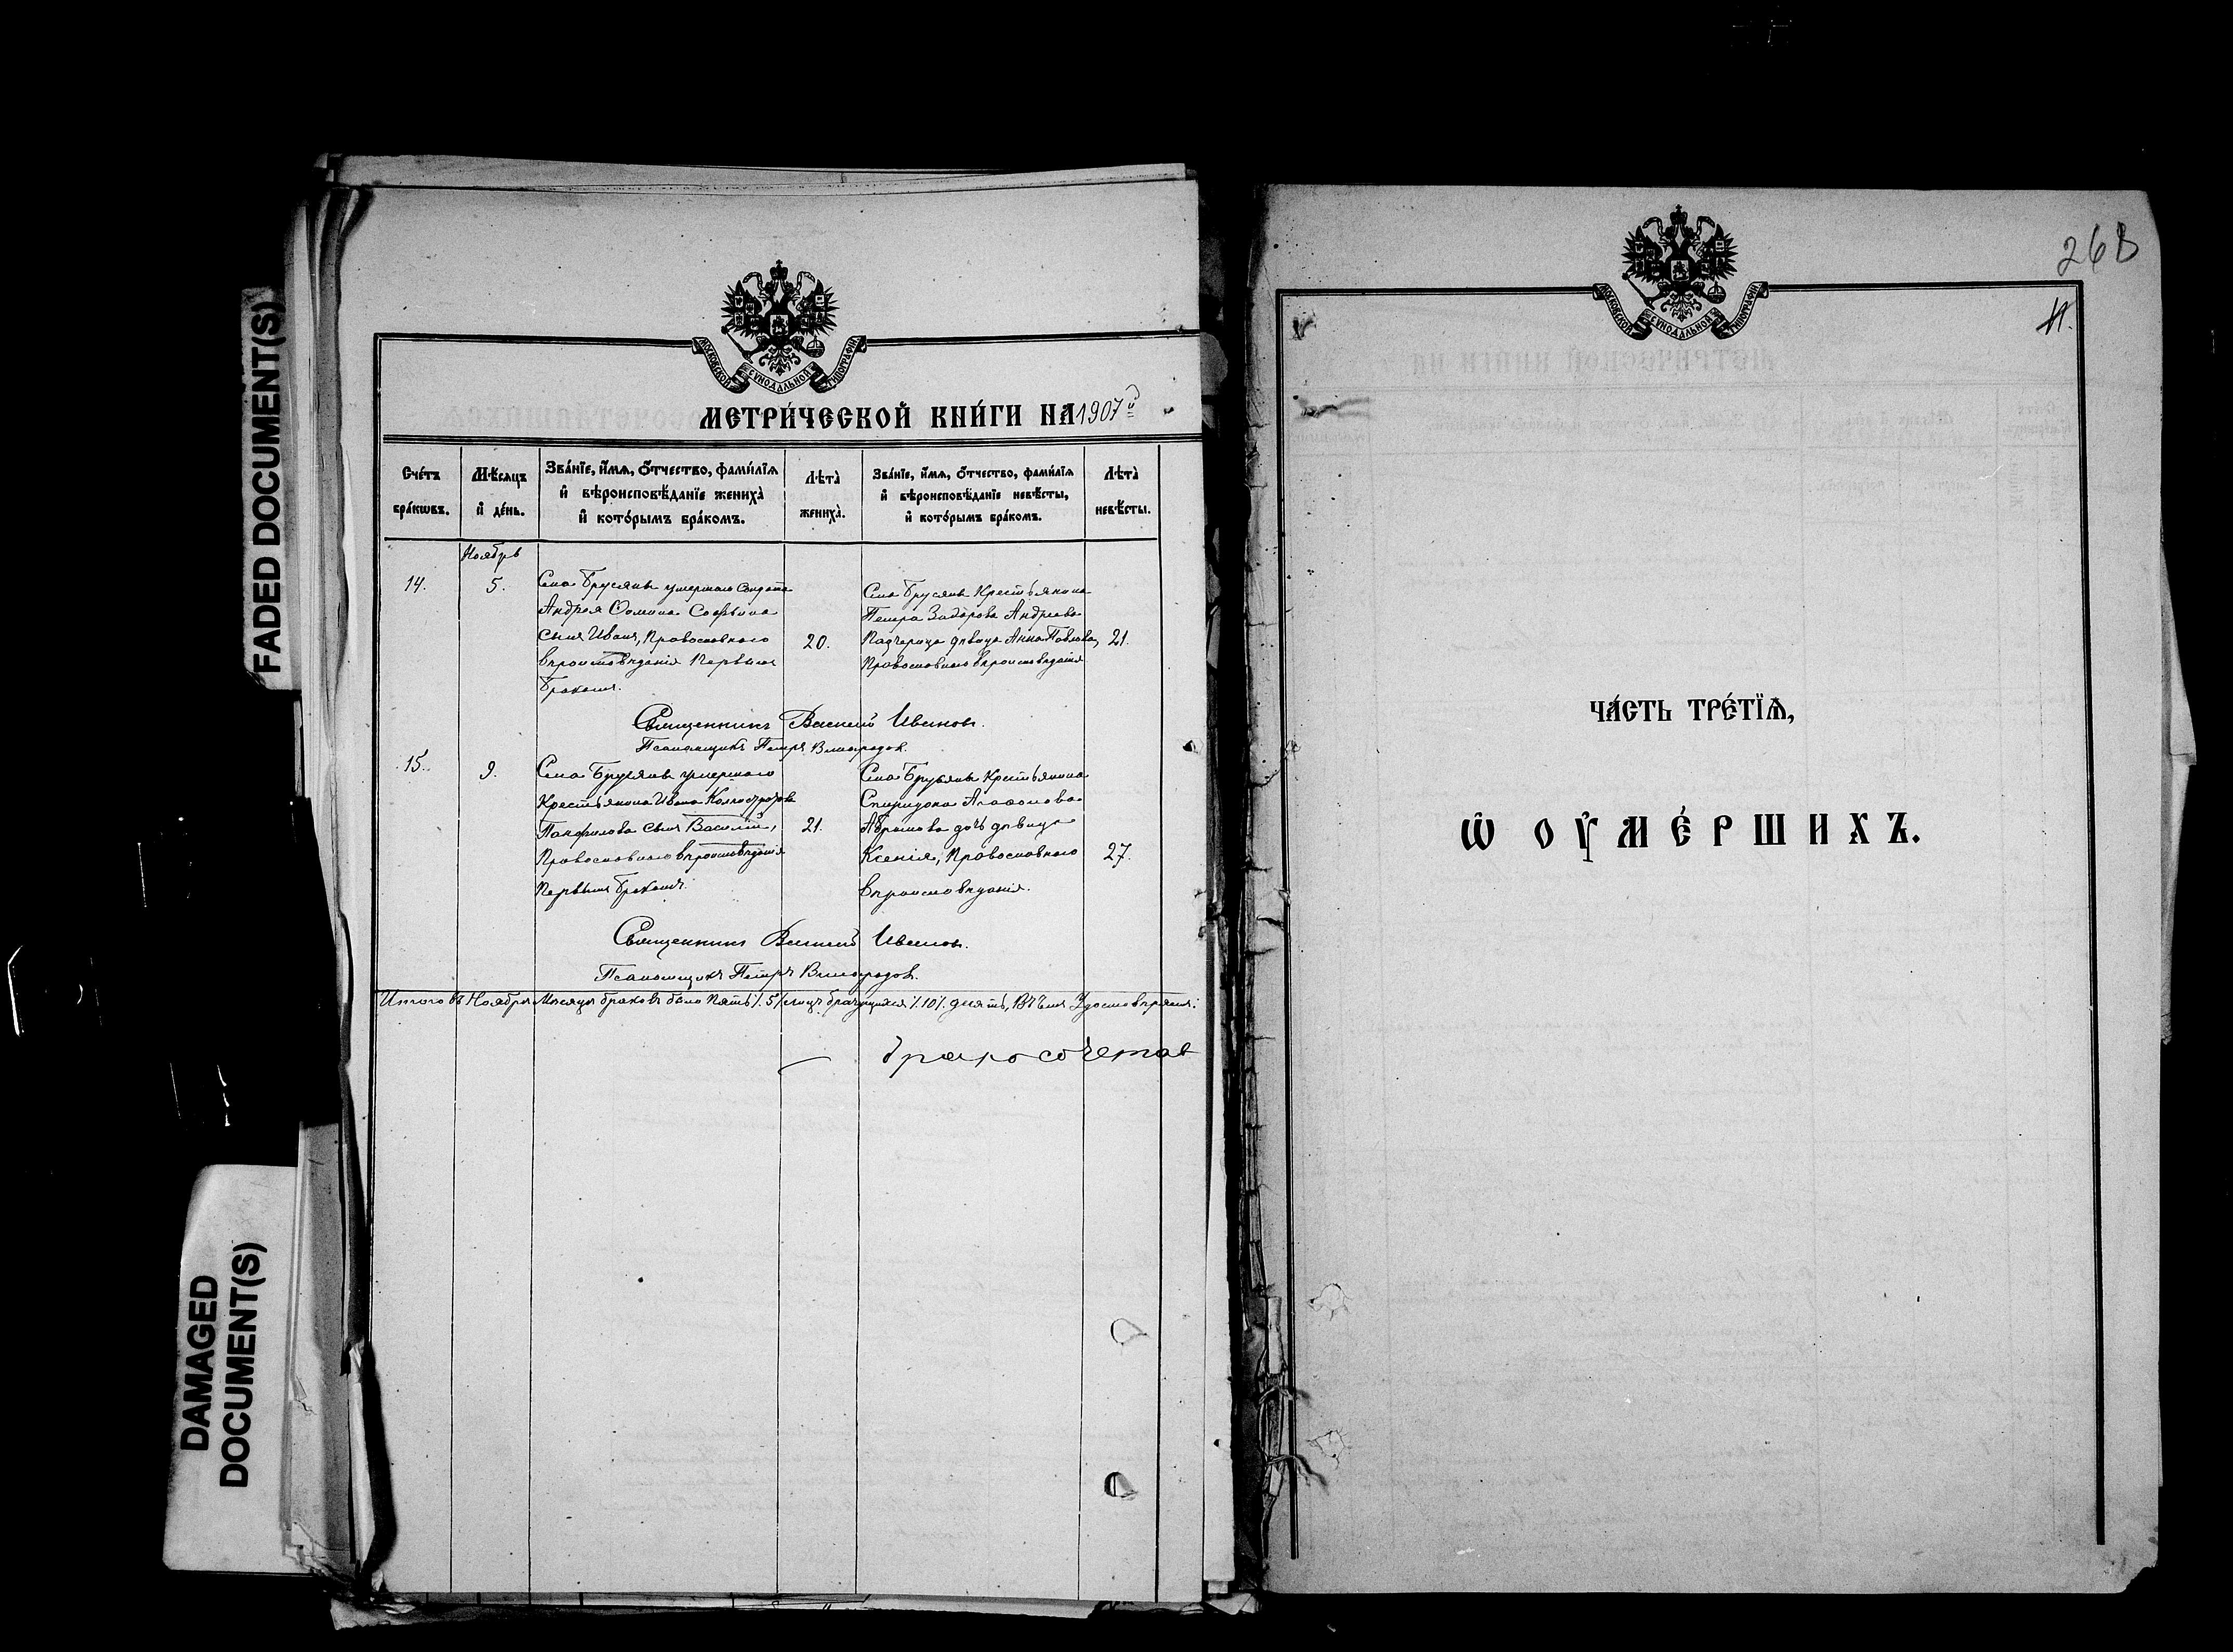 FADED DOCUMENT(S)
DAMAGED
DOCUMENT(S)
МОСКОВСКОЙ СѴНОДАЛЬНОЙ ТИПОГРАФІИ
МЕТРИ́ЧЕСКОЙ КНИ́ГИ НА 1907й
Сче́тъ
бра́кѡвъ.
Мѣ́сяцъ
и҆ де́нь.
Зва́нїе, и҆́мѧ, ѻ҆́тчество, фами́лїѧ
и҆ вѣроисповѣ́данїе жениха̀
и҆ кото́рымъ бра́комъ.
Лѣта̀
жениха̀.
Зва́нїе, и҆́мѧ, ѻ҆́тчество, фами́лїѧ
и҆ вѣроисповѣ́данїе невѣ́сты,
и҆ кото́рымъ бра́комъ.
Лѣта̀
невѣ́сты.
Ноябрь
14.
5.
Села Брусянъ умершаго солдата
Андрея Ѳомина
сынъ Иванъ, Православнаго
вѣроисповѣданія Первымъ
бракомъ.
20.
Села Брусянъ Крестьянина
Петра Андреева
Падчерица дѣвица Анна Павлова,
Православнаго вѣроисповѣданія
21.
Священникъ Василій Ивановъ.
Псаломщикъ Петръ Виноградовъ.
15.
9.
Села Брусянъ умершаго
Крестьянина Ивана Калистратова
Панфилова сынъ Василій,
Православнаго вѣроисповѣданія
Первымъ бракомъ.
21.
Села Брусянъ Крестьянина
Спиридона Агафонова
Абрамова дочь дѣвица
Ксенія, Православнаго
вѣроисповѣданія.
27.
Священникъ Василій Ивановъ.
Псаломщикъ Петръ Виноградовъ.
Итого въ Ноябрѣ Мѣсяцѣ браковъ было Пять /5/ лицъ брачущихся /10/ десять, въ чемъ Удостовѣряемъ:
бракосочетав
268
МОСКОВСКОЙ СѴНОДАЛЬНОЙ ТИПОГРАФІИ
ЧА́СТЬ ТРЕ́ТЇѦ,
Ѡ҆ ОУ҆МЕ́РШИХЪ.